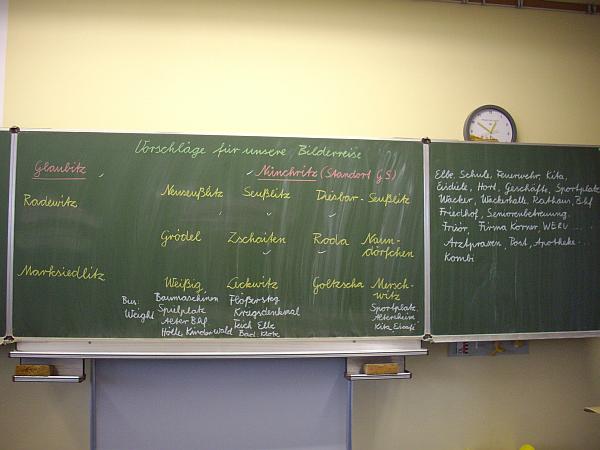 Vorschläge für unsere Bilderreise
Glaubitz Nünchritz (Standort GS)
Radewitz Neuseußlitz Seußlitz Diesbar-Seußlitz
Grödel Zschaiten Roda Naun-
dörfchen
Marksiedlitz Weißig Leckwitz Goltzscha Mersch-
witz
Bus: Baumaschinen Floßersteg Sportplatz
Weight Spielplatz Kriegsdenkmal Altersheim
Alter Bhf Teich Elbe Kita
Hölle Kinder Wald Bad
Elbe Schule, Feuerwehr, Kita,
Eisdiele, Hort, Geschäfte, Sportplatz
Wacker, Wackerhalle, Rathaus, Bhf
Friedhof, Seniorenbetreuung,
Frisör, Firma
Arztpraxen, Post, Apotheke...
Kombi